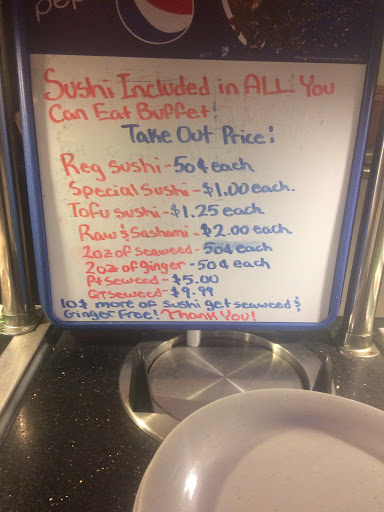 pepsi
Sushi Included in ALL You
Can Eat Buffet!
Take Out Price!
Reg sushi - 50¢ each
Special sushi - $1.00 each.
Tofu sushi - $1.25 each
Raw & Sashami - $2.00 each
2oz of seaweed - 50¢ each
2oz of ginger - 50¢ each
Pt Seweed - $5.00
QT seweed - $9.99
10$ more of Sushi get seaweed &
Ginger Free! Thank You!